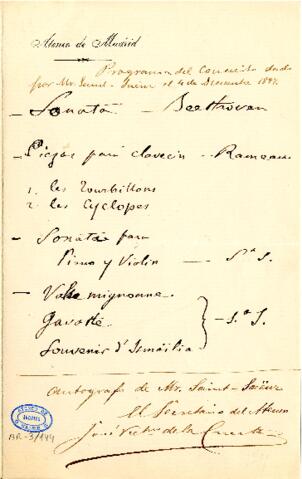 Ateneo de Madrid
Programa del Concierto dado
por Mr. Saint-Saens el 4 de Diciembre 1897.
— Sonata — Beethoven
Pieças para clavecin - Rameau
1. les Tourbillons
2. les Cyclopes
— Sonata para
Piano y Violin — Sᵗ S.
— Valse mignonne.
Gavotte — Sᵗ S.
Souvenir d'Ismaïlia
autografo de Mr. Saint-Saëns
El Secretario del Ateneo
José Victor de la Cuesta
BR-3/144